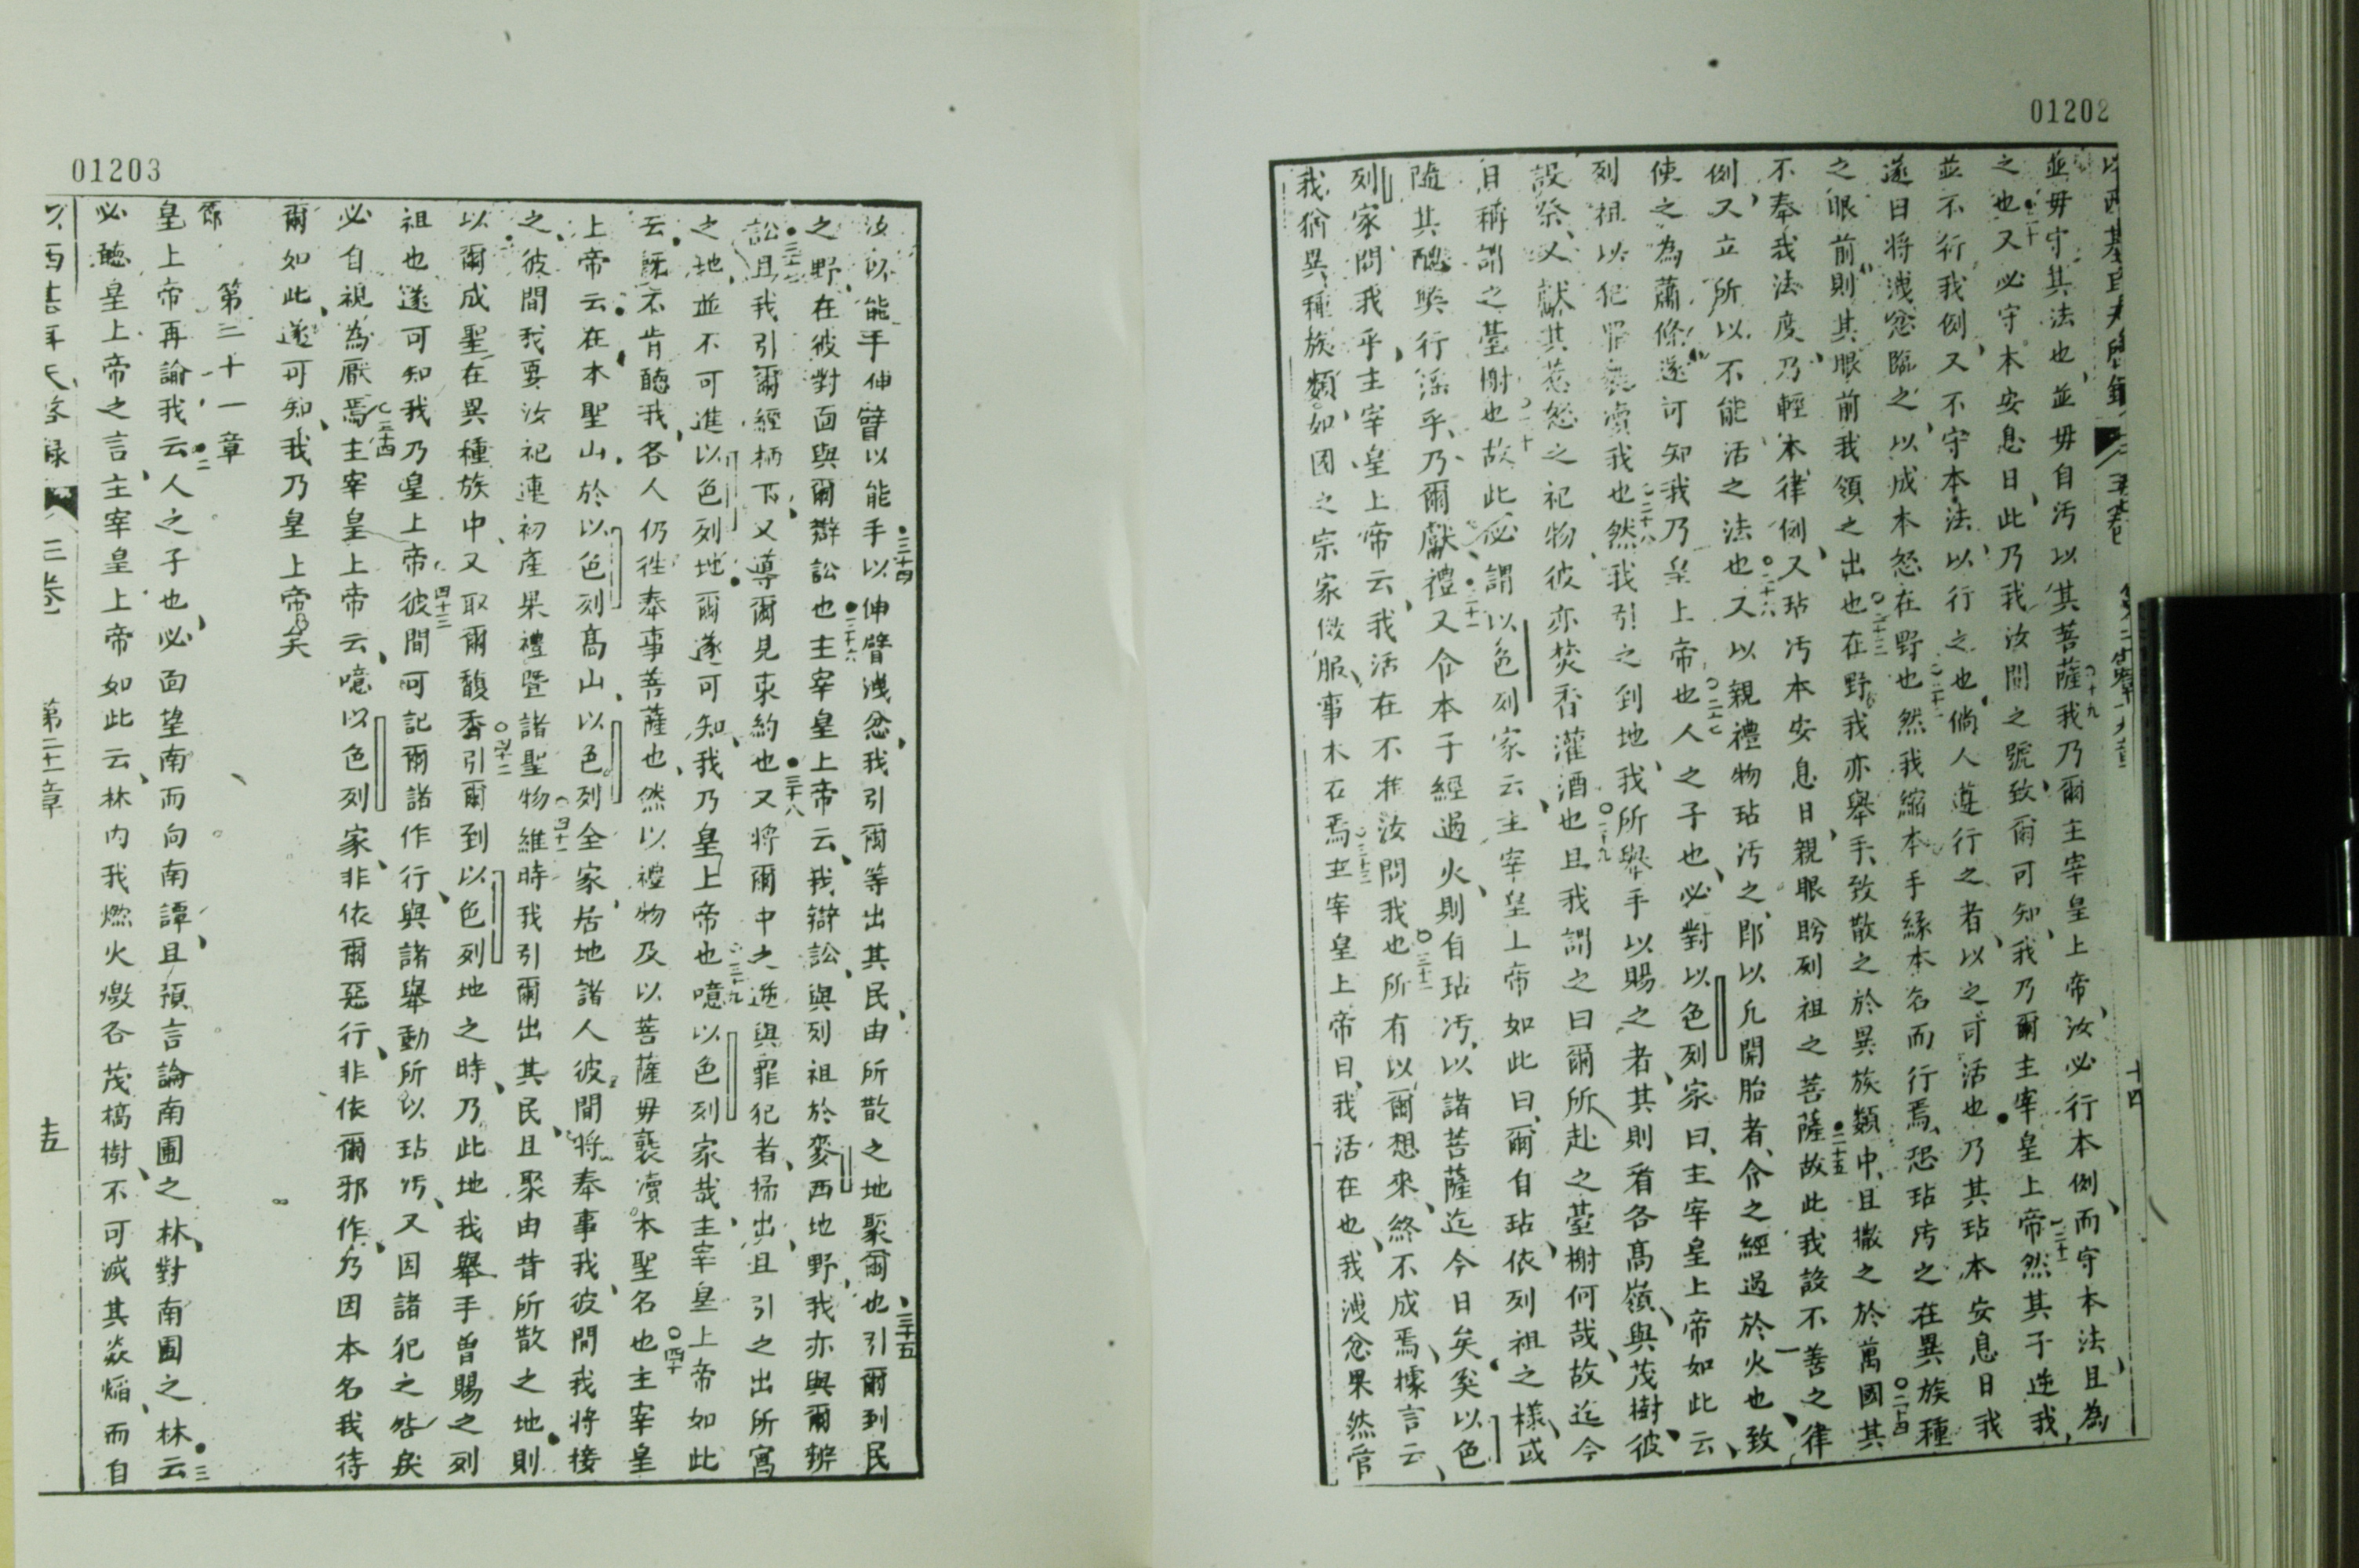 01202
並毋守其法也並毋自汚以其菩薩我乃爾主宰皇上帝汝必行本例而守本法且為
之也又必守本安息日此乃我汝間之號致爾可知我乃爾主宰皇上帝然其子逆我
並不行我例又不守本法以行之也倘人遵行之者以之可活也乃其玷本安息日我
遂曰將洩忿臨之以成本怒在野也然我縮本手緣本名而行焉恐玷汚之在異族種
之眼前則其眼前我領之出也在野我亦舉手致散之於異族類中且撒之於萬國其
不奉我法度乃輕本律例又玷汚本安息日親眼盼列祖之菩薩故此我設不善之律
例又立所以不能活之法也又以親禮物玷汚之即以凡開胎者令之經過於火也致
使之為蕭條遂可知我乃皇上帝也人之子也必對以色列家曰主宰皇上帝如此云
列祖以犯罪褻瀆我也然我引之到地我所舉手以賜之者其則看各高嶺與茂樹彼
設祭又獻其惹怒之祀物彼亦焚香灌酒也且我謂之曰爾所赴之臺榭何哉故迄今
日稱謂之臺榭也故此必謂以色列家云主宰皇上帝如此曰爾自玷依列祖之樣或
隨其醜弊行淫乎乃爾獻禮又令本子經過火則自玷汚以諸菩薩迄今日矣奚以色
列家問我乎主宰皇上帝云我活在不准汝問我也所有以爾想來終不成焉據言云
我猶異種族類如國之宗家儆服事木石焉主宰皇上帝曰我活在也我洩忿果然管
十四
01203
汝以能手伸臂以能手以伸臂洩忿我引爾等出其民由所散之地聚爾也引爾到民
之野在彼對面與爾辯訟也主宰皇上帝云我辯訟與列祖於麥西地野我亦與爾辨
訟且我引爾經柄下又導爾見束約也又將爾中之逆與罪犯者掃出且引之出所寓
之地並不可進以色列地爾遂可知我乃皇上帝也噫以色列家哉主宰皇上帝如此
云既不肯聽我各人仍往奉事菩薩也然以禮物及以菩薩毋褻瀆本聖名也主宰皇
上帝云在本聖山於以色列高山以色列全家居地諸人彼間將奉事我彼間我將接
之彼間我要汝祀連初產果禮暨諸聖物維時我引爾出其民且聚由昔所散之地則
以爾成聖在異種族中又取爾馥香引爾到以色列地之時乃此地我舉手曾賜之列
祖也遂可知我乃皇上帝彼間可記爾諸作行與諸舉動所以玷汚又因諸犯之咎矣
必自視為厭焉主宰皇上帝云噫以色列家非依爾惡行非依爾邪作乃因本名我待
爾如此遂可知我乃皇上帝矣
第二十一章
節
皇上帝再諭我云人之子也必面望南而向南譚且預言論南圃之林對南圃之林云
必聽皇上帝之言主宰皇上帝如此云林內我燃火燬各茂槁樹不可滅其焱焰而自
三卷
第二十一章